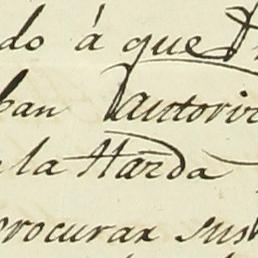 do á que
ban autori
la Harda
procurar sus